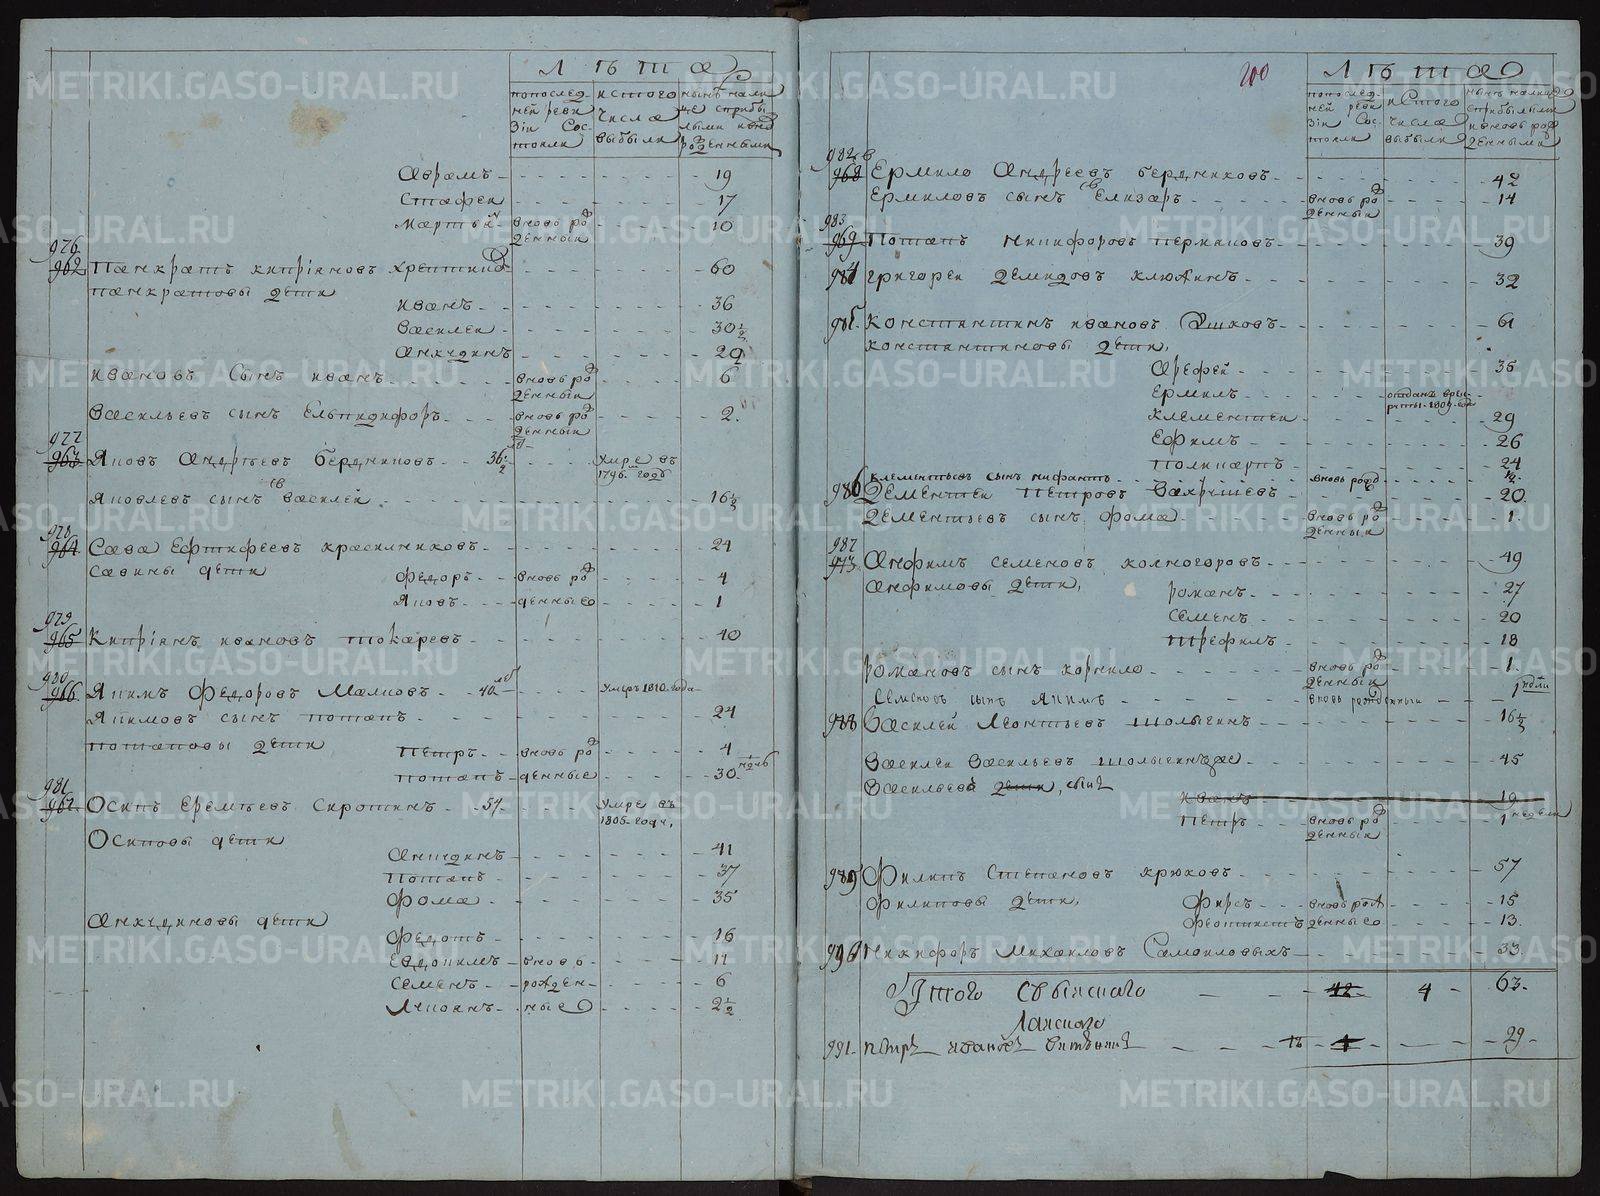 Лѣта
попослед
ней реви
зіи Сос
тояли
истого
числа
выбыли
нынѣ нали
це сприбы
лыми ивнов
рожденными
Аврамъ 19
Стафей 17
Мартын вновь рож
денный 10
976
962 Панкратъ Кипріяновъ Хрептико 60
Панкратовы дети
Иванъ 36
Василеи 30½
Анкидинъ 29
Ивановъ сынъ Иванъ вновь рож
денныи 6
Васильевъ сынъ Елпидифоръ вновь рож
денныи 2.
977
963 Яковъ Андрѣевъ Бердниковъ 36½ умре въ
1796 году
Яковлевъ сынъ Василеи 16½
978
964 Сава Ефтифеевъ Красилниковъ 24
Савины дети
Федоръ вновь рож 4
Яковъ денные 1
979
965 Кипріянъ Ивановъ Токаревъ 40
980
966 Якимъ Федоровъ Малковъ 40 умеръ 1810. года
Якимовъ сынъ Потапъ 24
Потаповы дети
Петръ вновь рож 4
Потапъ денные 30
981
967 Осипъ Еремѣевъ Сиротинъ 57 умре въ
1805 году,
Осиповы дети
Аникдинъ 41
Потапъ 37
Фома 35
Анкидиновы дети
Федотъ 16
Евдокимъ вново 11
Семенъ рожден 6
Лукоянъ ные 2½
200
Лѣта
попослед
ней реви
зіи Сос
тояли
истого
числа
выбыли
нынѣ налицо
сприбылыми
ивновь рож
денными
982
968 Ермило Андреевъ Бердниковъ 42
Ермиловъ сынъ Елизаръ вновь рож
денныи 14
983
969 Потапъ Никифоровъ Пермяковъ 39
984 Григореи Демидовъ Клюкинъ 32
985 Константинъ Ивановъ Ушковъ 61
Константиновы дети,
Арефей 35
Ермилъ отданъ врек
руты 1809 году
Клементеи 29
Ефимъ 26
Поликарпъ 24
Клементьевъ сынъ Нифантъ вновь рожд ½
986 Дементеи Петровъ Вахрушевъ 20
Дементьевъ сынъ Фома вновь рож
денныи 1
987
973 Анфимъ Семеновъ Колногоровъ 49
Анфимовы дети,
Романъ 27
Семенъ 20
Трефилъ 18
Романовъ сынъ Корнило вновь рож
денныи 1.
Семеновъ сынъ Якимъ вновь рожденныи 1 ндли
988 Василей Леонтьевъ Шолыгинъ 16½
Василеи Васильевъ Шолыгинъже 45
Васильева дети, сынъ
Иванъ 19
Петръ вновь рож
денныи 1 недели
989 Филипъ Степановъ Крюковъ 57
Филиповы дети,
Фирсъ вновь рож 15
Феоктистъ денные 13.
990 Никифоръ Михаиловъ Самоиловыхъ 33.
Итого Сѣвинского 42 4 63.
Ланского
991. Петръ Ивановъ 18 1 29